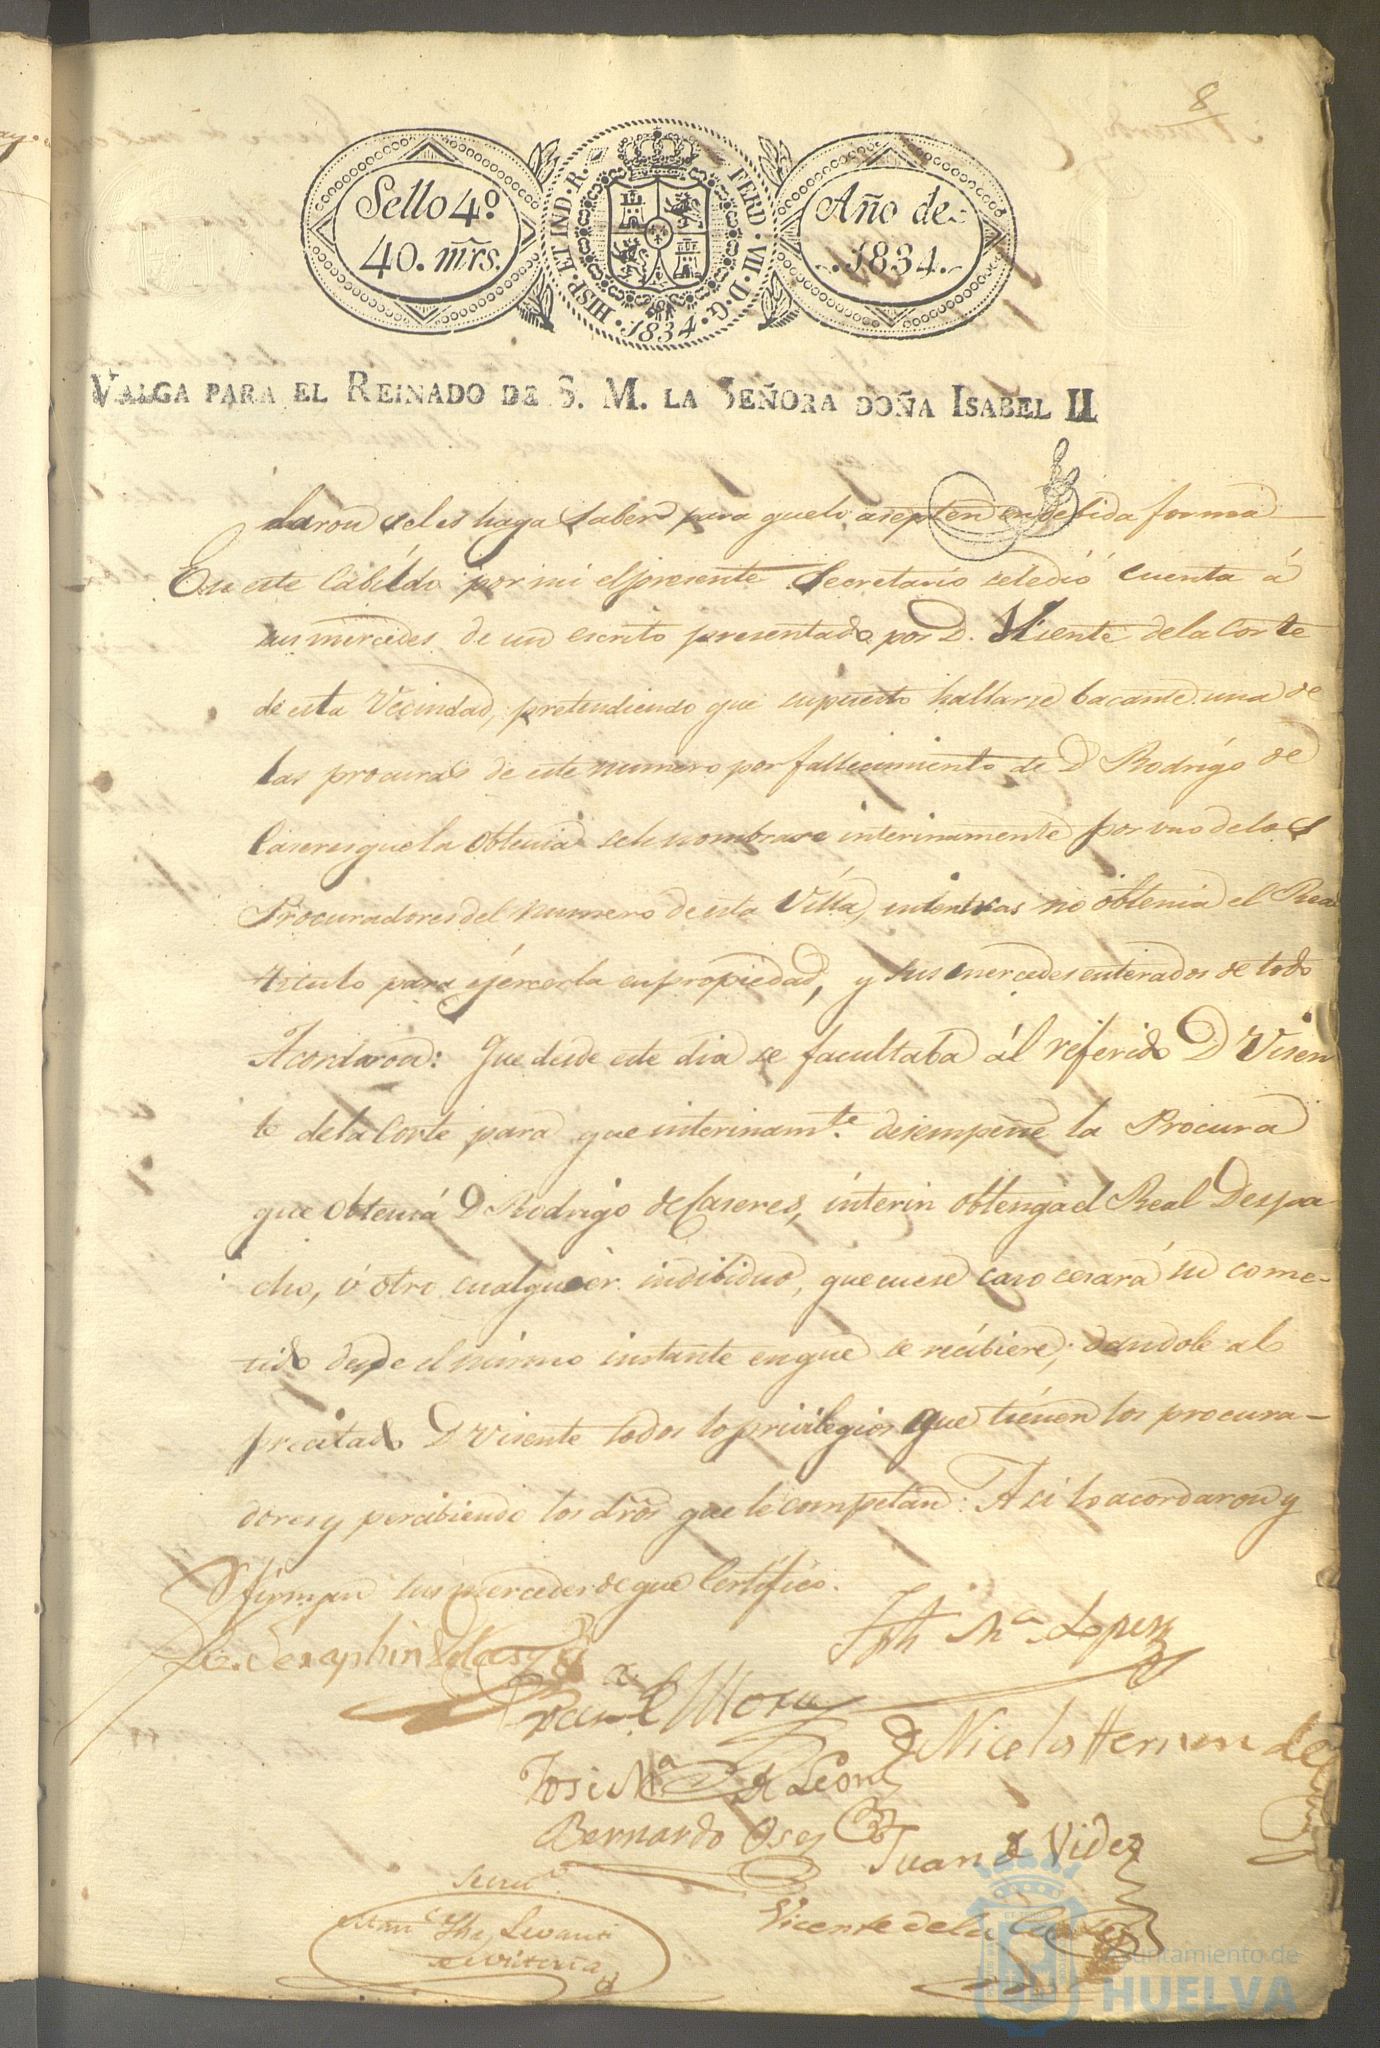 8
Sello 4º
40. mrs.
HISP. ET IND. R. FERD. VII. D. G. 1834.
Año de
1834.
VALGA PARA EL REINADO DE S. M. LA SEÑORA DOÑA ISABEL II
daron seles haga saber para quelo asepten en debida forma
En este Cabildo por mi el presente Secretario seledió cuenta á
sus mercedes de un escrito presentado por D. Visente dela Corte
de esta Vecindad, pretendiendo que supuesto hallarse bacante una de
las procuras de este numero por fallecimiento de D Rodrigo de
Caseres quela obtenia sele nombrase interinamente por uno delos
Procuradores del numero de esta Villa, interticas no obtenia el Real
titulo para ejercerla en propiedad, y sus mercedes enterados de todo
Acordaron: Que desde este dia se facultaba ál referido D Visen
te dela Corte para que interinamte. desempeñe la Procura
que obtenia D Rodrigo de Caseres, interin obtenga el Real Despa
cho, ó otro cualquier indibiduo, que en ese caso cesará su come-
tido desde el mismo instante en que se recibiere; dandole al
precitado D Visente todos lo privilegios que tienen los procura-
dores y percibiendo los dros que le competan: Asi lo acordaron y
firman sus mercedes de que Certifico.
Seraphin
Jph Ma. Lopez
Franco. Mora
D Nicolas Hernandez
José Ma de Leon
Bernardo Osey
Juan de Videz
Vicente de la Corte
Ayuntamiento de
HUELVA